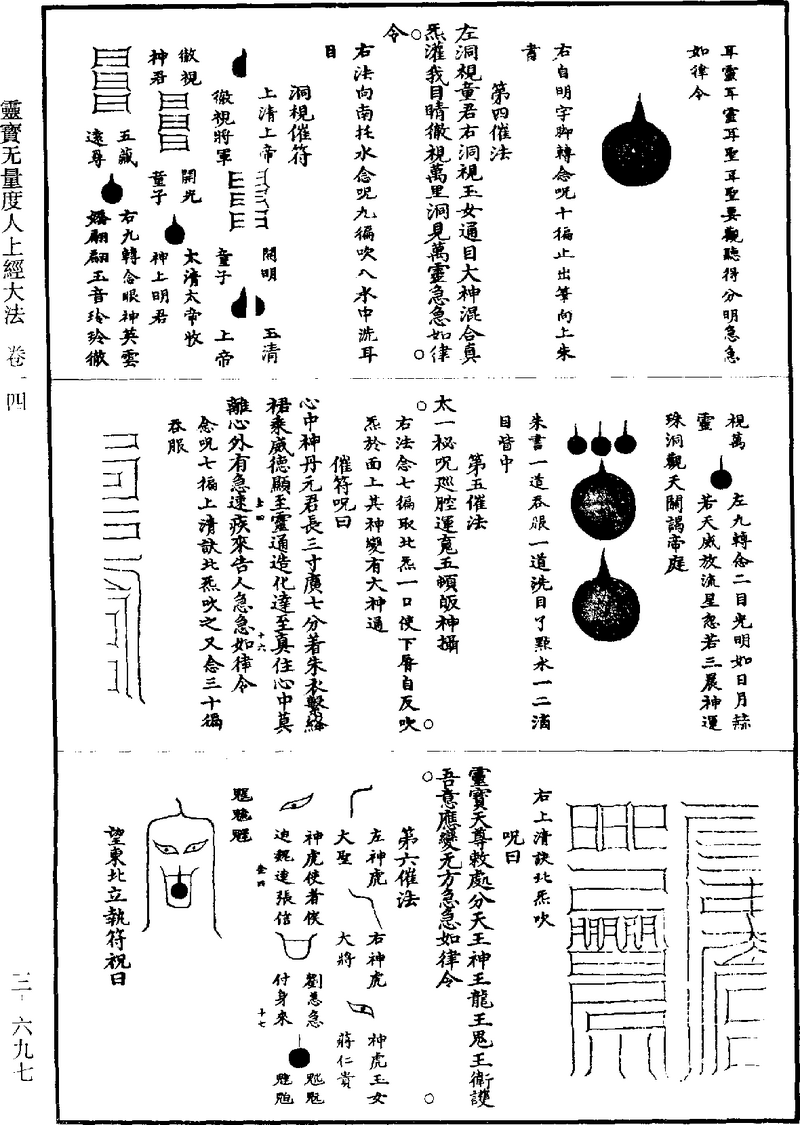 耳靈耳靈耳聖耳聖要觀聽得分明急急
如律令
右自明字脚轉念呪十徧止出筆向上朱
書
第四催法
左洞視童君右洞視玉女通目大神混合真
炁灌我目睛徹視萬里洞見萬靈急急如律
令
右法向南托水念呪九徧吹入水中洗耳
目
洞視催符
上清上帝
開明
玉清
徹視將軍
童子
上帝
徹視
神君
開光
童子
太清太帝收
神上明君
五藏
遠尋
右九轉念眼神英雲
翩翩玉音玲玲徹
視萬
靈
左九轉念二目光明如日月赫
若天威放流星忽若三晨神運
珠洞觀天關謁帝庭
朱書一道吞服一道洗目了點水一二滴
目眥中
第五催法
太一秘呪廵腔運竟五頓皈神攝
右法念七徧取北炁一口使下唇自反吹
炁於面上其神變有大神通
催符呪曰
心中神丹元君長三寸廣七分著朱衣繫絳
裙乘威德顯至靈通造化達至真住心中莫
離心外有急速疾來告人急急如律令
念呪七徧上清訣北炁吹之又念三十徧
吞服
上四
十六
右上清訣北炁吹
呪曰
靈寶天尊敕處分天王神王龍王鬼王衛護
吾意應變无方急急如律令
第六催法
左神虎
大聖
右神虎
大將
神虎玉女
蔣仁貴
神虎使者侯
迫魏速張信
劉惎急
付身來
壹四
十七
望東北立執符祝曰
靈寶无量度人上經大法 卷一四
三-六九七